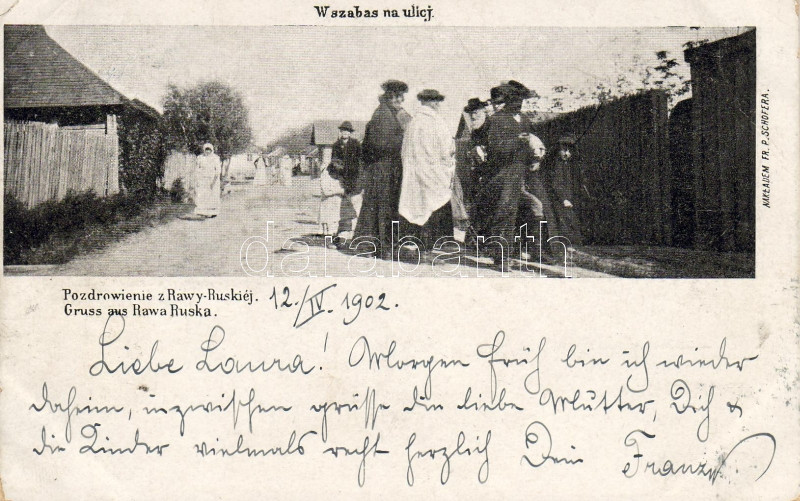 Wszabas na ulicj.
NAKŁADEM FR. P. SCHOFERA.
darabanth
Pozdrowienie z Rawy-Ruskiéj. 12./IV. 1902.
Gruss aus Rawa Ruska.
Liebe Laura! Morgen früh bin ich wieder
daheim, inzwischen grüsse die liebe Mutter, Dich &
die Kinder vielmals recht herzlich Dein Franz